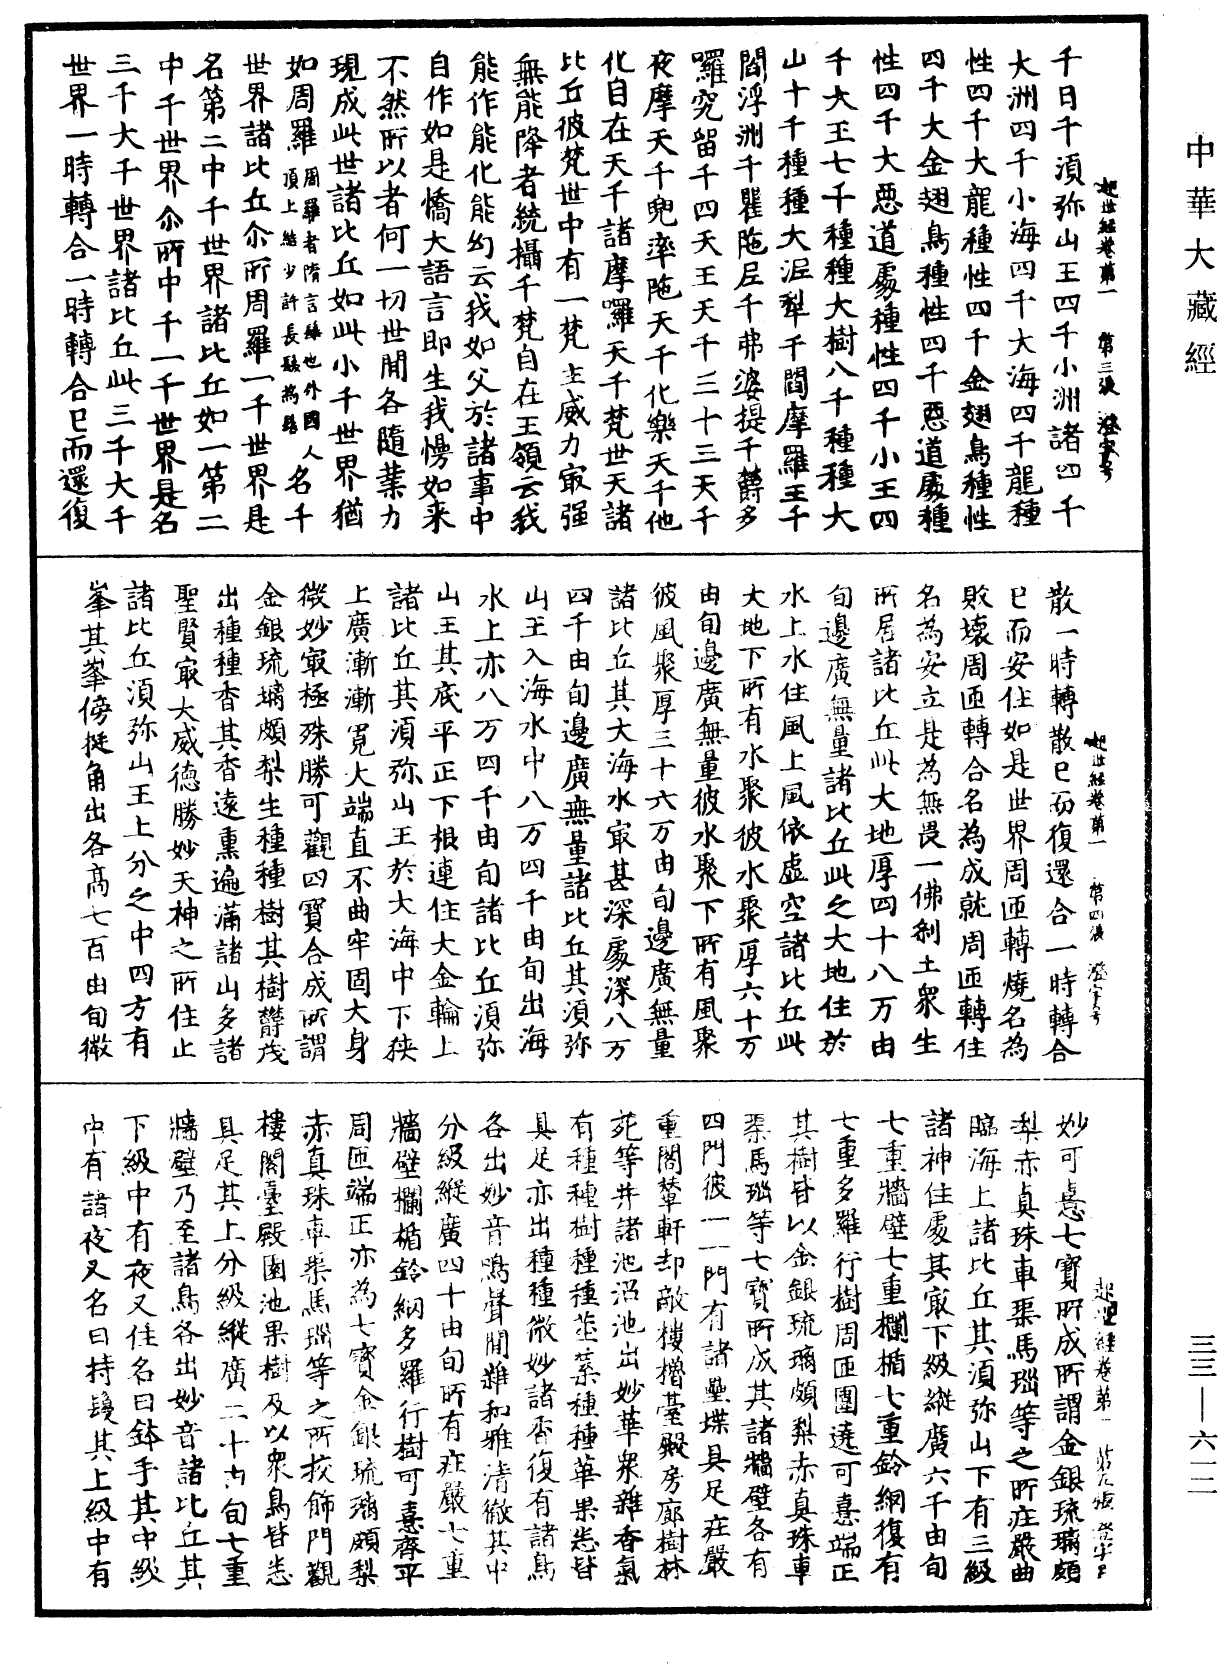 中華大藏經
起世經卷第一 第三張 澄字号
千日千湏弥山王四千小洲諸四千
大洲四千小海四千大海四千龍種
性四千大龍種性四千金翅鳥種性
四千大金翅鳥種性四千惡道䖏種
性四千大惡道䖏種性四千小王四
千大王七千種種大樹八千種種大
山十千種種大泥犁千閻摩羅王千
閻浮洲千瞿陁尼千弗婆提千欝多
囉究留千四天王天千三十三天千
夜摩天千兜率陁天千化樂天千他
化自在天千諸摩羅天千梵世天諸
比丘彼梵世中有一梵主威力㝡强
無能降者統攝千梵自在王領云我
能作能化能幻云我如父於諸事中
自作如是憍大語言即生我慢如来
不然所以者何一切世間各隨業力
現成此世諸比丘如此小千世界猶
如周羅周羅者隋言髻也外國人頂上結少許長髮為髻名千
世界諸比丘尒所周羅一千世界是
名第二中千世界諸比丘如一第二
中千世界尒所中千一千世界是名
三千大千世界諸比丘此三千大千
世界一時轉合一時轉合已而還復
起世經卷第一 第四張 澄字号
散一時轉散已而復還合一時轉合
已而安住如是世界周匝轉燒名為
敗壞周匝轉合名為成就周匝轉住
名為安立是為無畏一佛刹土衆生
所居諸比丘此大地厚四十八万由
旬邊廣無量諸比丘此之大地住於
水上水住風上風依虛空諸比丘此
大地下所有水聚彼水聚厚六十万
由旬邊廣無量彼水聚下所有風聚
彼風聚厚三十六万由旬邊廣無量
諸比丘其大海水㝡甚深䖏深八万
四千由旬邊廣無量諸比丘其湏弥
山王入海水中八万四千由旬出海
水上亦八万四千由旬諸比丘湏弥
山王其底平正下根連住大金輪上
諸比丘其湏弥山王於大海中下狹
上廣漸漸寬大端直不曲牢固大身
微妙㝡極殊勝可觀四寶合成所謂
金銀琉璃頗梨生種種樹其樹欝茂
出種種香其香遠熏遍滿諸山多諸
聖賢㝡大威德勝妙天神之所住止
諸比丘湏弥山王上分之中四方有
峯其峯傍挺角出各髙七百由旬微
起世經卷第一 第五張 澄字号
妙可憙七寶所成所謂金銀琉璃頗
梨赤真珠車𤦲馬瑙等之所莊嚴曲
臨海上諸比丘其湏弥山下有三級
諸神住䖏其㝡下級縱廣六千由旬
七重牆壁七重欄楯七重鈴網復有
七重多羅行樹周匝圍遶可憙端正
其樹皆以金銀琉璃頗梨赤真珠車
𤦲馬瑙等七寶所成其諸牆壁各有
四門彼一一門有諸壘堞具足莊嚴
重閣輦軒却敵樓櫓臺殿房廊樹林
苑等并諸池沼池出妙華衆雜香氣
有種種樹種種莖葉種種華果悉皆
具足亦出種種微妙諸香復有諸鳥
各出妙音鳴聲閒雜和雅清徹其中
分級縱廣四十由旬所有莊嚴七重
牆壁欄楯鈴網多羅行樹可憙齊平
周匝端正亦為七寶金銀琉璃頗梨
赤真珠車𤦲馬瑙等之所挍飾門觀
樓閣臺殿園池果樹及以衆鳥皆悉
具足其上分級縱廣二十由旬七重
牆壁乃至諸鳥各出妙音諸比丘其
下級中有夜叉住名曰鉢手其中級
中有諸夜叉名曰持鬘其上級中有
三三—六一二